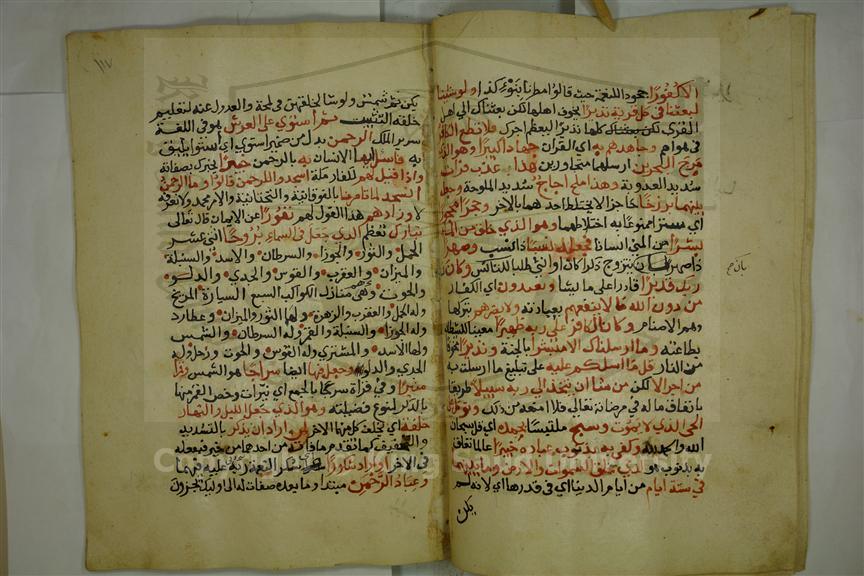 الاكفورا جحود اللنعمة حيث قالوا مطرنا بنوء كذا ولو شئنا
لبعثنا في كل قرية نذيرا يخوف اهلها لكن بعثناك الى اهل
القرى كلها نذيرا ليعظم اجرك فلا تطع الكافرين
في هواهم وجاهدهم به اى القرآن جهادا كبيرا وهو الذى
مرج البحرين ارسلهما متجاورين هذا عذب فرات
شديد العذوبة وهذا ملح اجاج شديد الملوحة وجعل
بينهما برزخا حاجزا لا يختلط احدهما بالاخر وحجرا محجورا
اى سترا ممنوعا به اختلاطهما وهو الذى خلق من الماء
بشرا من المنى انسانا فجعله نسبا ذا نسب وصهرا
ذا صهر بان يتزوج ذكرا كان او انثى طلبا للتناسل وكان
ربك قديرا قادرا على ما يشاء ويعبدون اى الكفار
من دون الله ما لا ينفعهم بعبادته ولا يضرهم بتركها
وهو الاصنام وكان الكافر على ربه ظهيرا معينا للشيطان
بطاعته وما ارسلناك الا مبشرا بالجنة ونذيرا مخوفا
من النار قل ما اسلكم عليه على تبليغ ما ارسلت به
من اجر الا لكن من شاء ان يتخذ الى ربه سبيلا طريقا
بانفاق ماله في مرضاته تعالى فلا امنعه من ذلك وتوكل على
الحى الذى لا يموت وسبح ملتبسا بحمده اى قل سبحان
الله والحمد لله وكفى به بذنوب عباده خبيرا عالما تعلق
به بذنوب هو الذى خلق السموات والارض وما بينهما
في ستة ايام من ايام الدنيا اى في قدرها اى لانه لم
يكن
بان ح
١١٧
يكن ثم شمس ولو شاء لخلقهن في لمحة والعدول عنه لتعليم
خلقه التثبت ثم استوى على العرش هو في اللغة
سرير الملك الرحمن بدل من ضمير استوى اى استواء يليق
به فاسئل ايها الانسان به بالرحمن خبيرا يخبرك بصفاته
واذا قيل لهم لكفار مكة اسجدوا للرحمن قالوا وما الرحمن
انسجد لما تامرنا بالفوقانية والتحتانية والامر محمد ولا نعرفه
لا وزادهم هذا القول لهم نفورا عن الايمان قال تعالى
تبارك تعظم الذى جعل في السماء بروجا اثنى عشر
الحمل والثور والجوزاء والسرطان والاسد والسنبلة
والميزان والعقرب والقوس والجدى والدلو
والحوت وهى منازل الكواكب السبع السيارة المريخ
وله الحمل والعقرب والزهرة ولها الثور والميزان وعطارد
وله الجوزاء والسنبلة والقمر وله السرطان والشمس
ولها الاسد والمشترى وله القوس والحوت وزحل وله
الجدى والدلو وجعل فيها ايضا سراجا هو الشمس وقمرا
منيرا وفي قراة سرجا بالجمع اى نيرات وخص القمر منها
بالذكر لنوع فضيلته وهو الذى جعل الليل والنهار
خلفة اى يخلف كل منهما الاخر لمن اراد ان يذكر بالتشديد
والتخفيف كما تقدم ما فاته من احدهما من خير فيفعله
في الاخر او اراد شكورا لنعمة ربه عليه فيهما
وعباد الرحمن مبتدا وما بعده صفات له الى اوليك يجزون